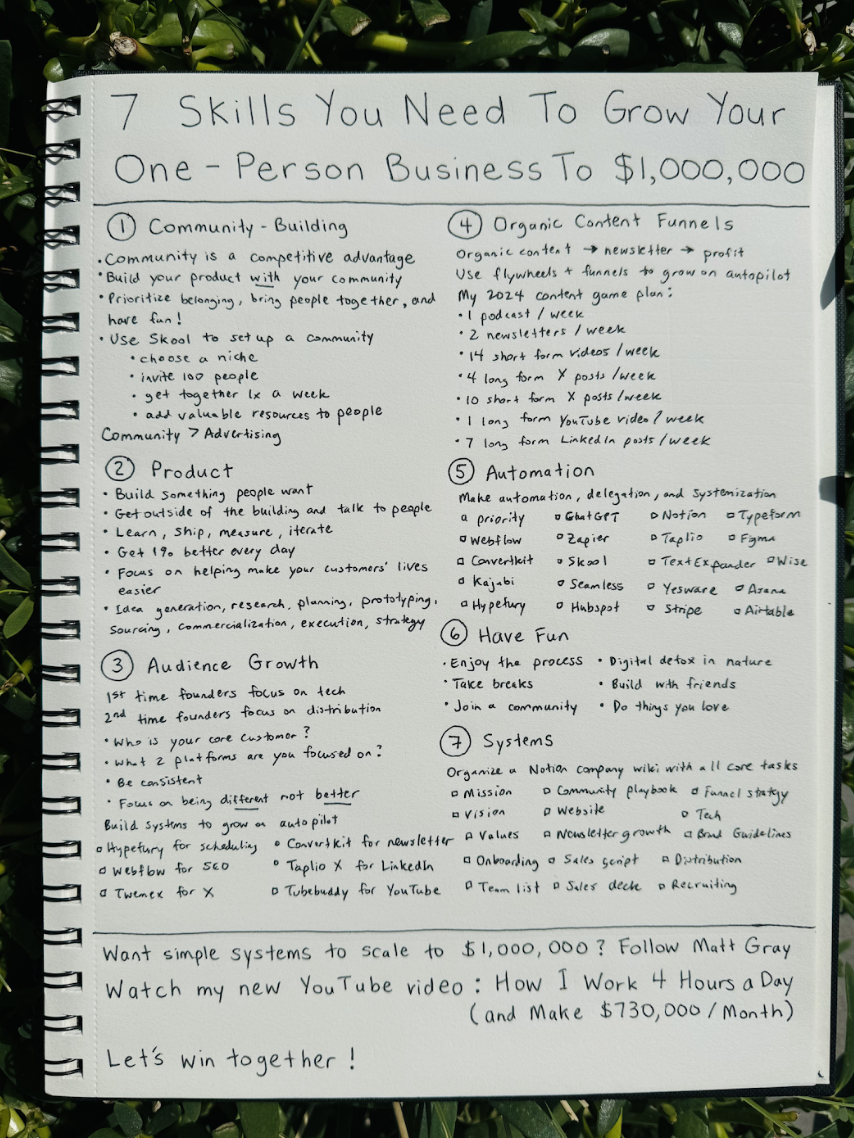 7 Skills You Need To Grow Your
One-Person Business To $1,000,000
① Community-Building
• Community is a competitive advantage
• Build your product with your community
• Prioritize belonging, bring people together, and
have fun!
• Use Skool to set up a community
• choose a niche
• invite 100 people
• get together 1x a week
• add valuable resources to people
Community > Advertising
② Product
• Build something people want
• Get outside of the building and talk to people
• Learn, ship, measure, iterate
• Get 1% better every day
• Focus on helping make your customers' lives
easier
• Idea generation, research, planning, prototyping,
sourcing, commercialization, execution, strategy
③ Audience Growth
1st time founders focus on tech
2nd time founders focus on distribution
• Who is your core customer?
• What 2 platforms are you focused on?
• Be consistent
• Focus on being different not better
Build systems to grow on autopilot
▫ Hypefury for scheduling ▫ Convertkit for newsletter
▫ Webflow for SEO ▫ Taplio X for LinkedIn
▫ Twemex for X ▫ Tubebuddy for YouTube
④ Organic Content Funnels
Organic content → newsletter → profit
Use flywheels + funnels to grow on autopilot
My 2024 content game plan:
• 1 podcast / week
• 2 newsletters / week
• 14 short form videos / week
• 4 long form X posts / week
• 10 short form X posts / week
• 1 long form YouTube video / week
• 7 long form LinkedIn posts / week
⑤ Automation
Make automation, delegation, and systemization
a priority ▫ ChatGPT ▫ Notion ▫ Typeform
▫ Webflow ▫ Zapier ▫ Taplio ▫ Figma
▫ Convertkit ▫ Skool ▫ TextExpander ▫ Wise
▫ Kajabi ▫ Seamless ▫ Yesware ▫ Asana
▫ Hypefury ▫ Hubspot ▫ Stripe ▫ Airtable
⑥ Have Fun
• Enjoy the process • Digital detox in nature
• Take breaks • Build with friends
• Join a community • Do things you love
⑦ Systems
Organize a Notion company wiki with all core tasks
▫ Mission ▫ Community playbook ▫ Funnel stratgy
▫ Vision ▫ Website ▫ Tech
▫ Values ▫ Newsletter growth ▫ Brand Guidelines
▫ Onboarding ▫ Sales script ▫ Distribution
▫ Team list ▫ Sales deck ▫ Recruiting
Want simple systems to scale to $1,000,000? Follow Matt Gray
Watch my new YouTube video: How I Work 4 Hours a Day
(and Make $730,000/Month)
Let's win together!